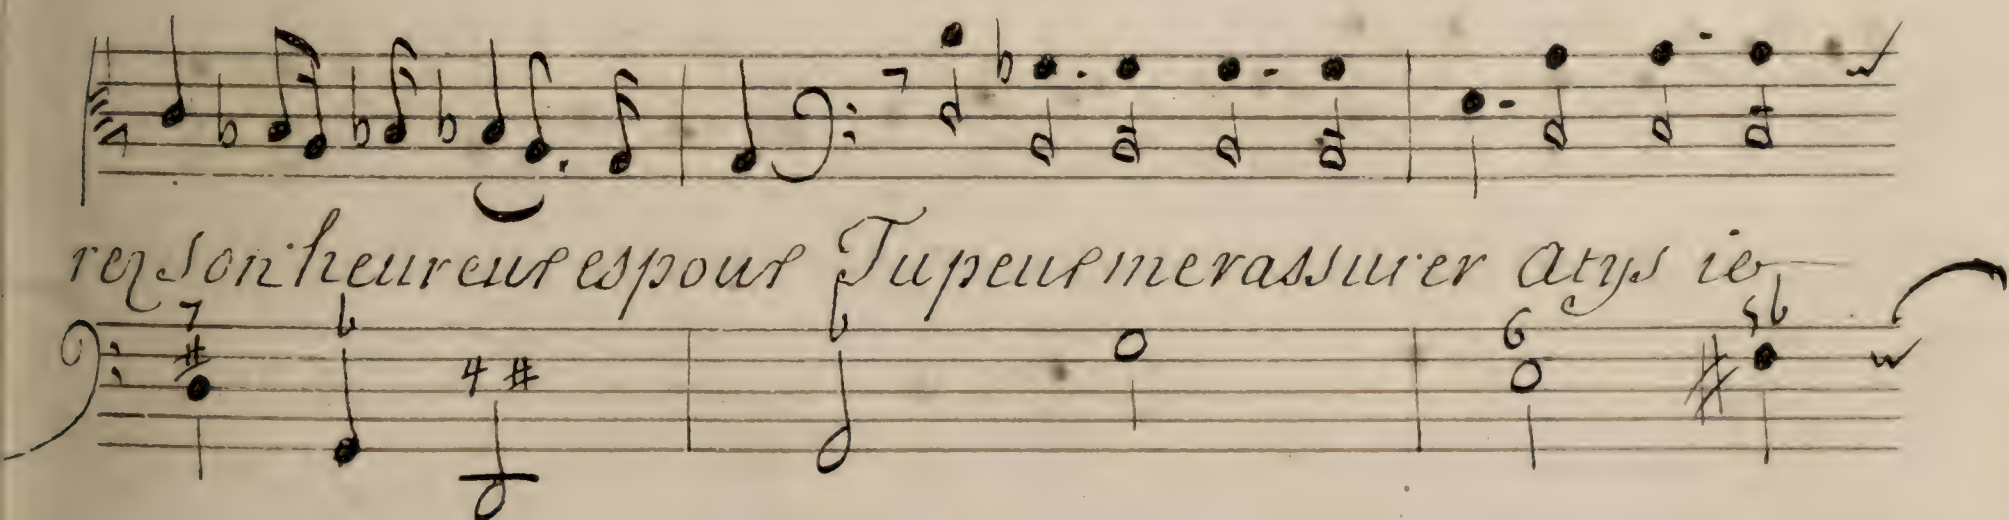 rez son heureux espoux Tu peux me rassurer Atys ie
7 # b 4 # b 6 5b